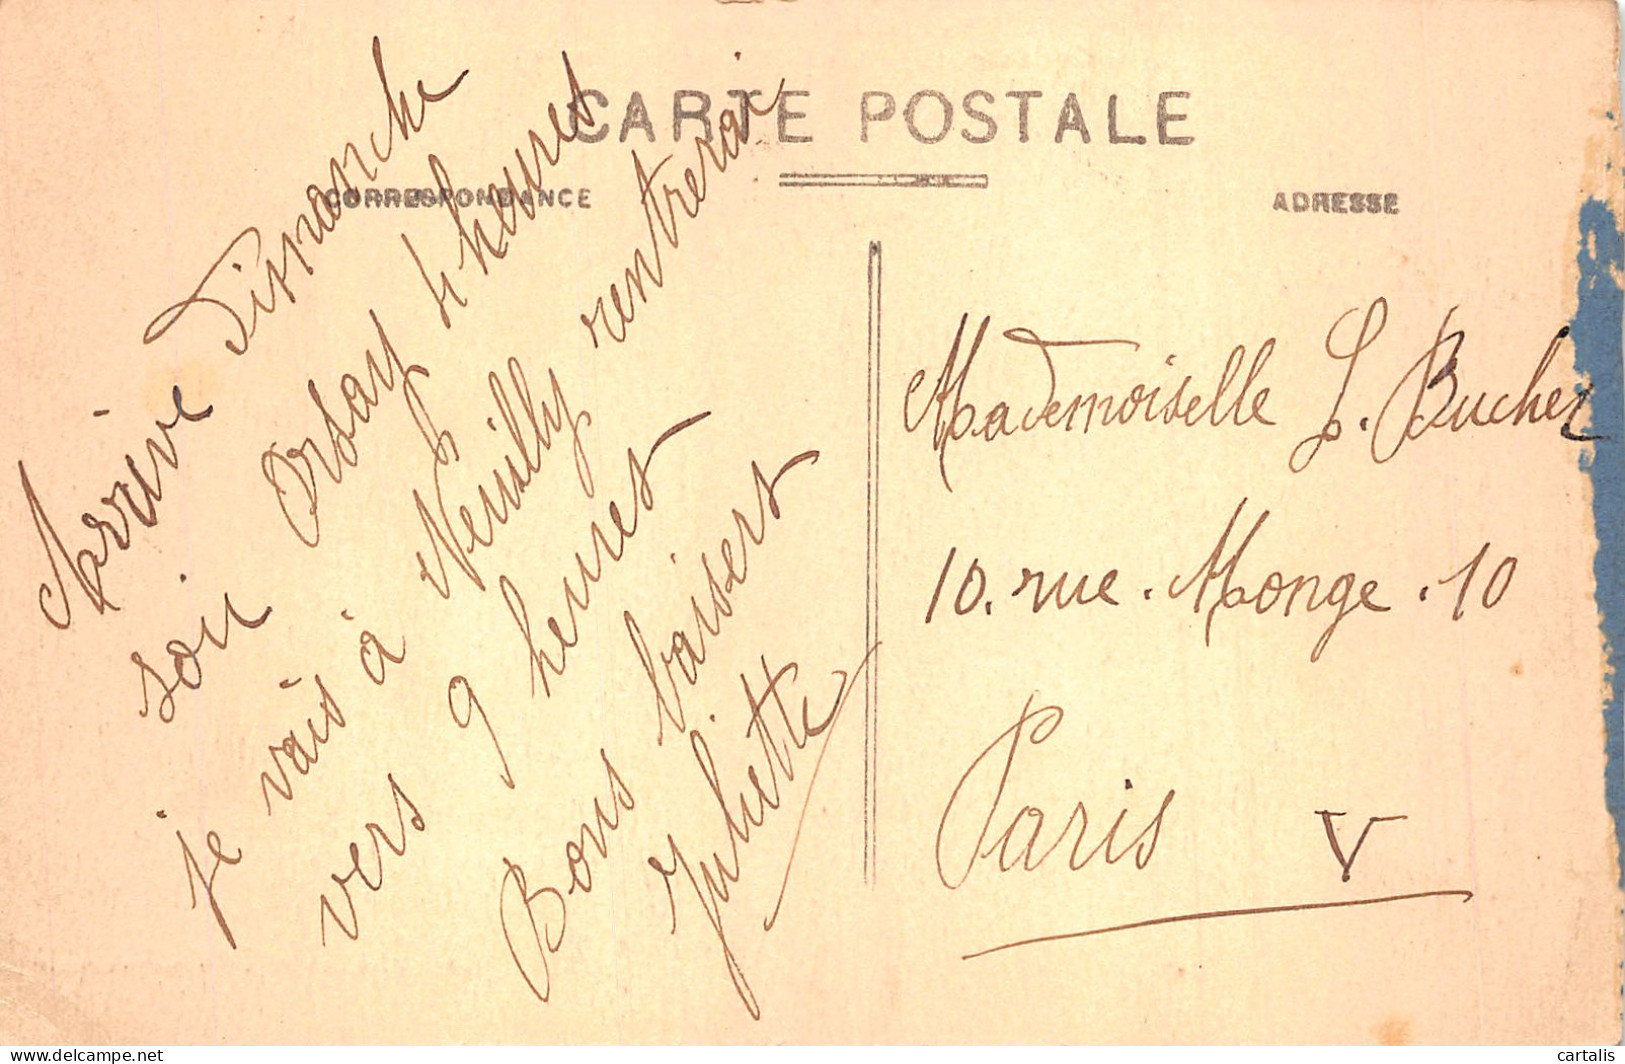 CARTE POSTALE
CORRESPONDANCE
ADRESSE
Arrive Dimanche
soir Orsay 4 heures
je vais à Neuilly rentrerai
vers 9 heures
Bons baisers
Juliette
Mademoiselle L. Bucher
10. rue. Monge. 10
Paris V
www.delcampe.net
cartalis